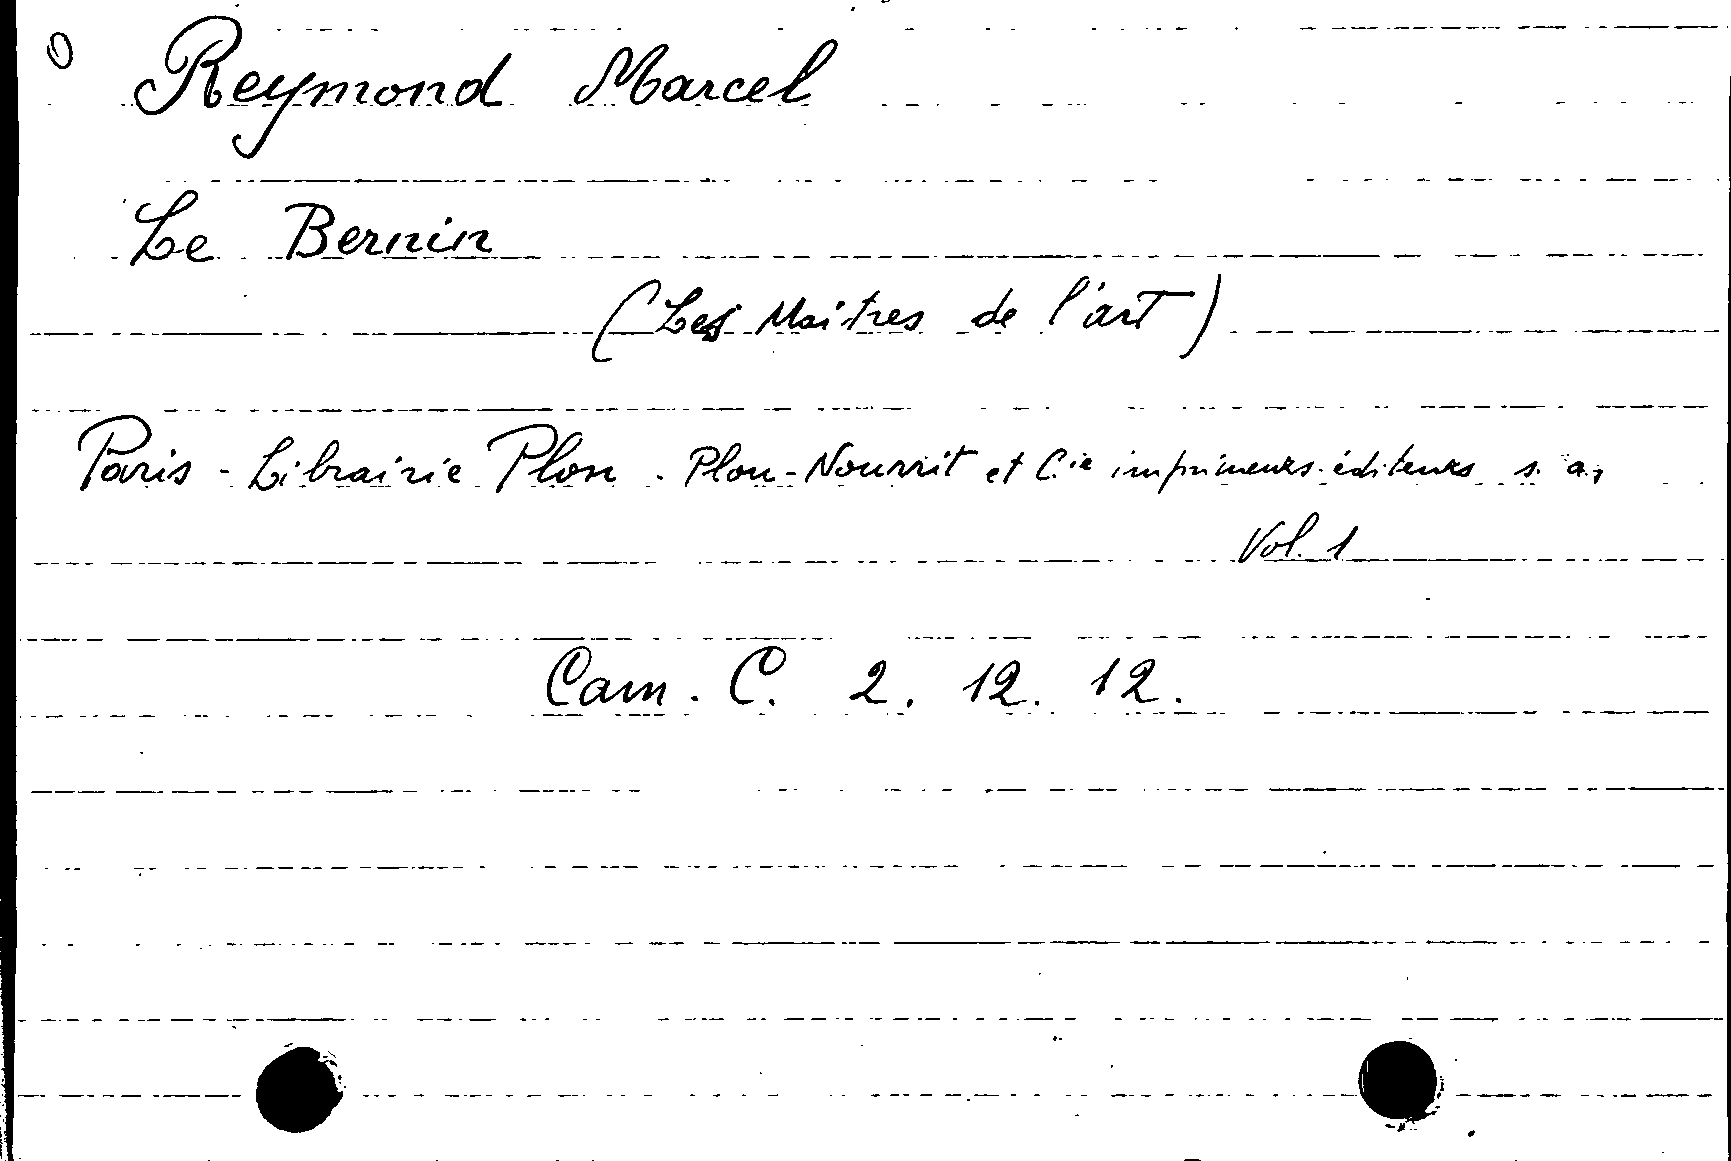 0 Reymond Marcel
Le Bernin
(Les Maitres de l'art)
Paris - Librairie Plon. Plon-Nourrit et C.ie imprimeurs-éditeurs s. a.,
Vol. 1
Cam. C. 2. 12. 12.